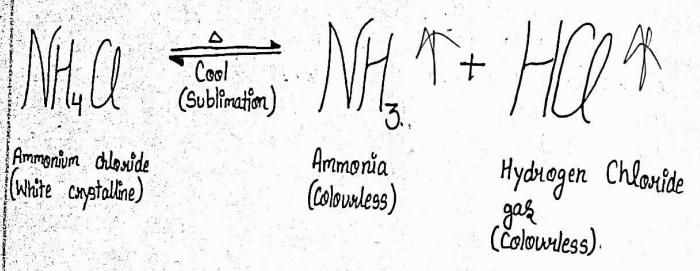 NH4Cl ⇌ NH3 ↑ + HCl ↑
Δ
Cool
(Sublimation)
Ammonium chloride
(White crystalline)
Ammonia
(Colourless)
Hydrogen Chloride
gas
(Colourless).